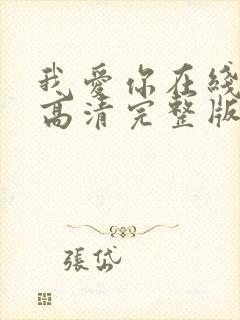 我愛你在綫
高清完整版
張岱